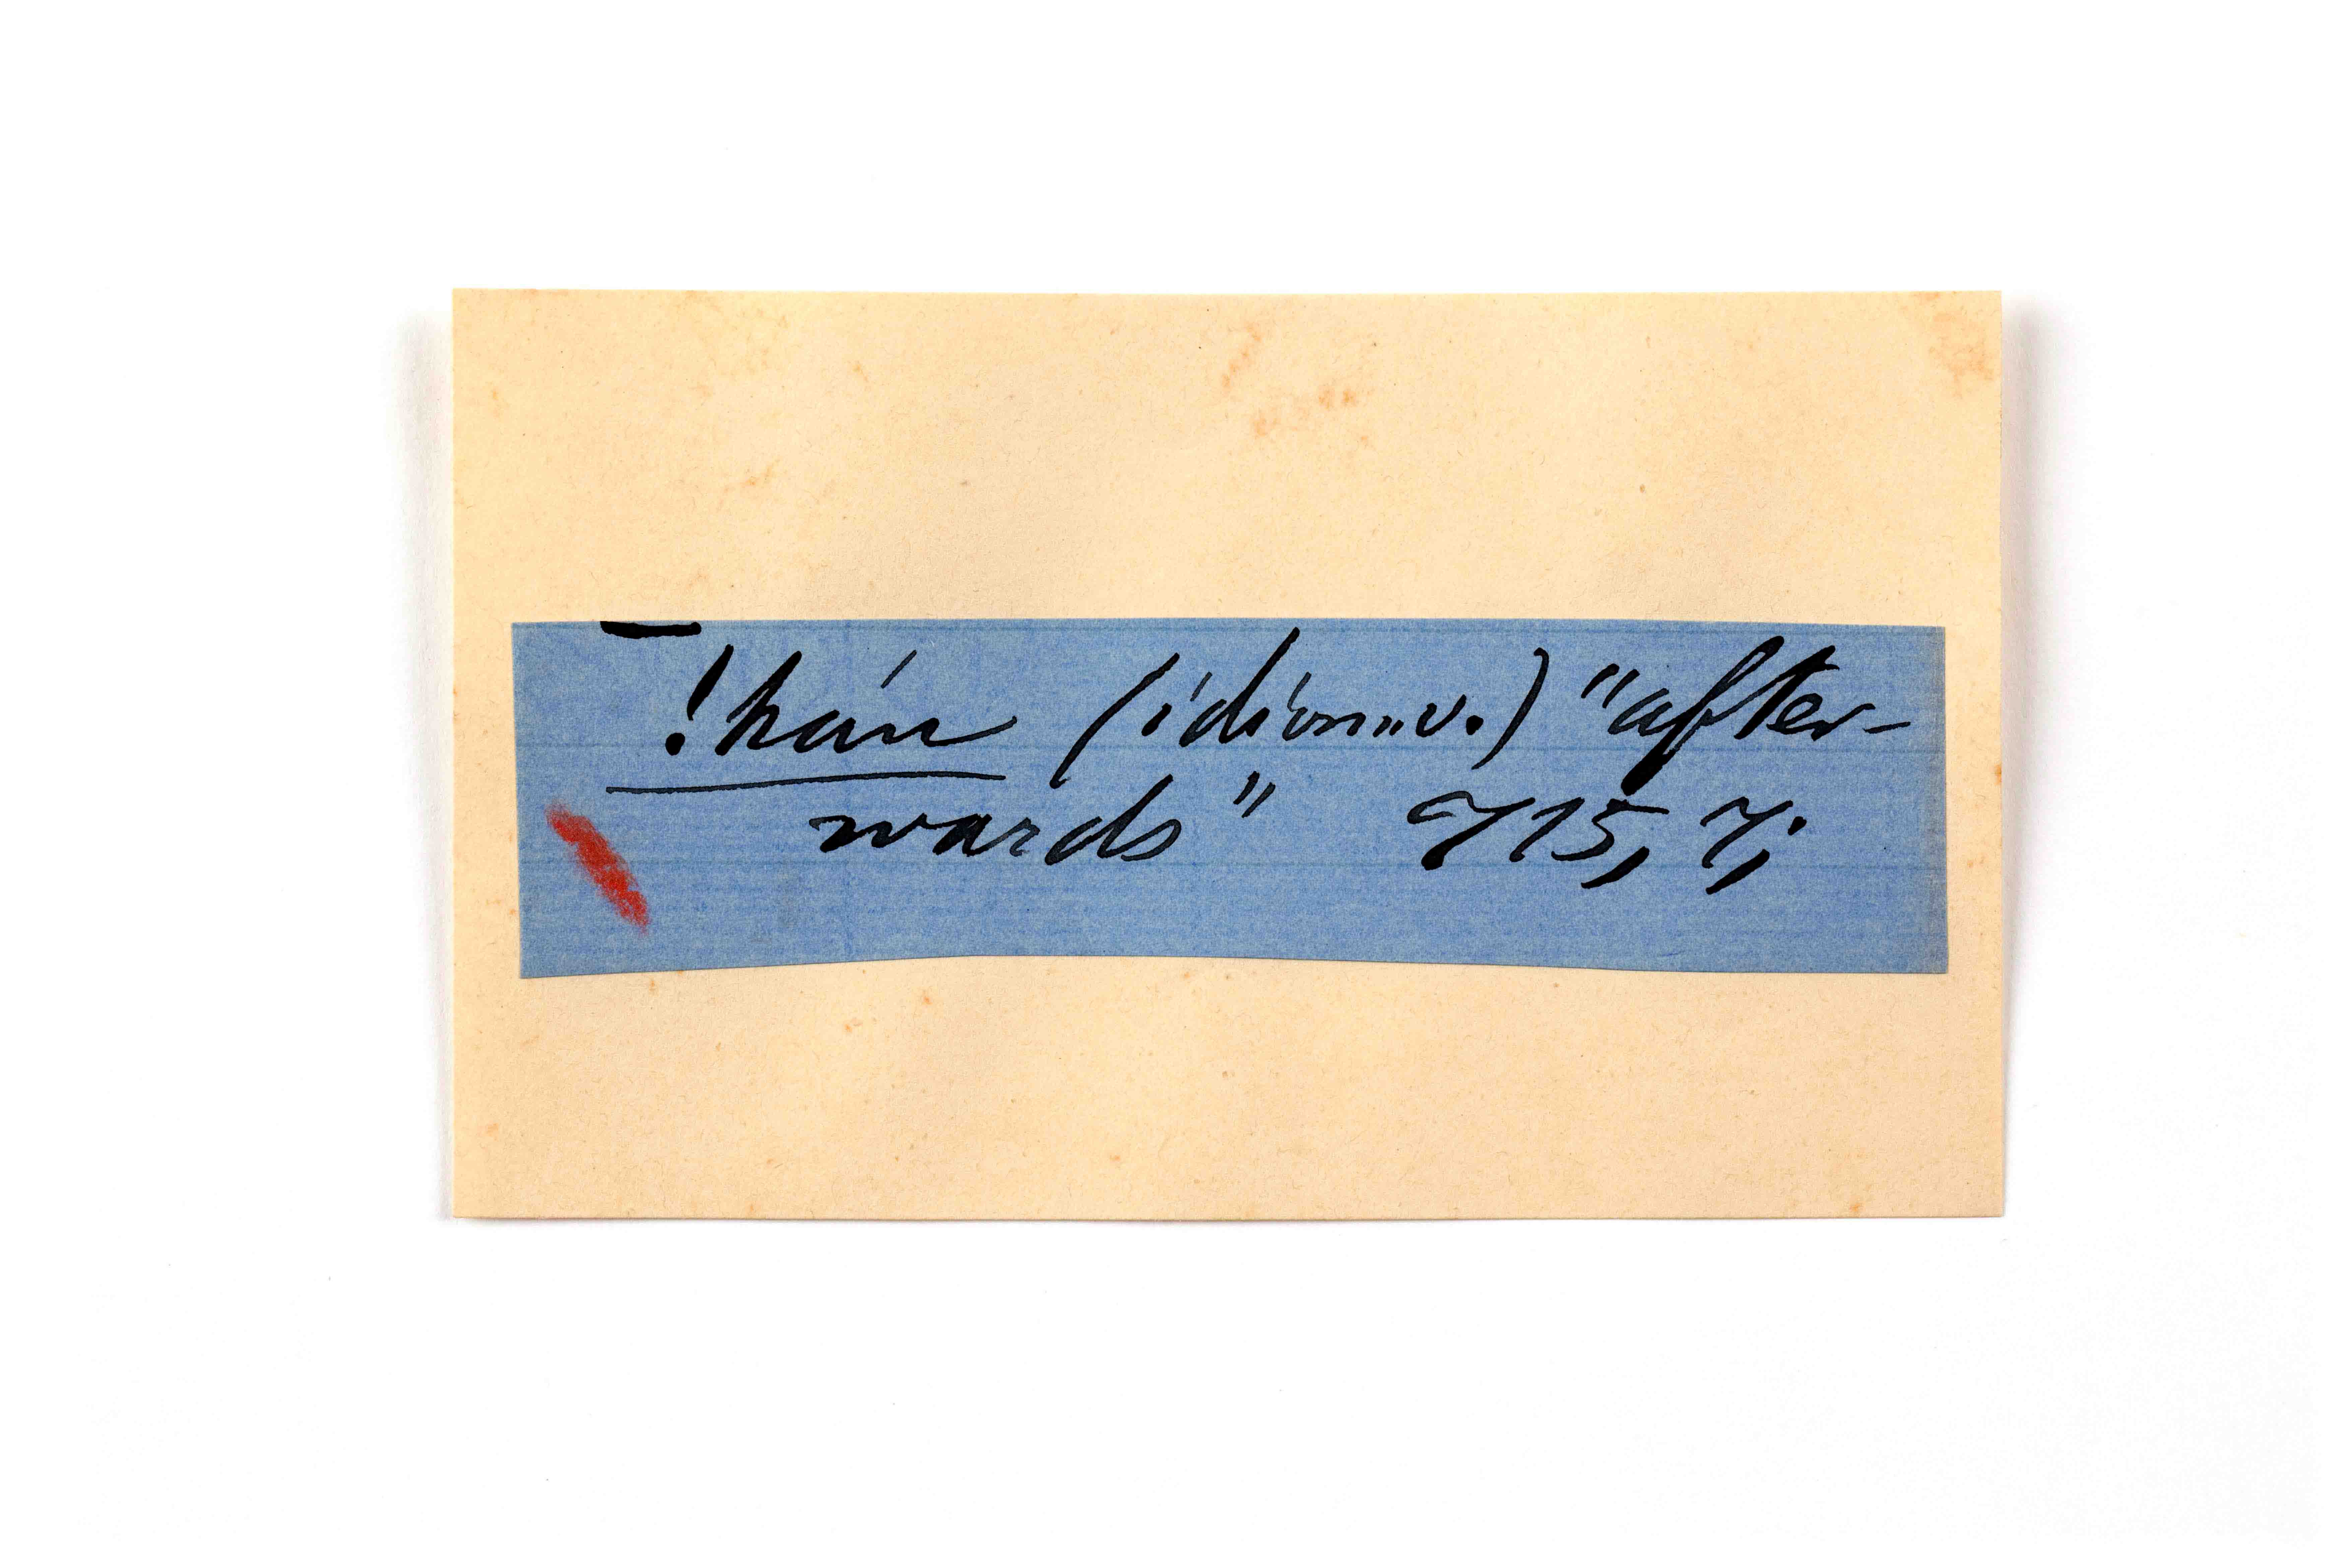 !hán (idiom. v.) "after-
wards" 715, 7;